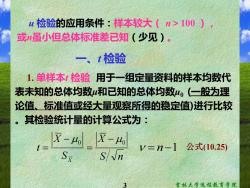 u 检验的应用条件：样本较大（ n＞100 ），
或n虽小但总体标准差已知（少见）。
一、t 检验
1. 单样本t 检验 用于一组定量资料的样本均数代
表未知的总体均数μ和已知的总体均数μ₀（一般为理
论值、标准值或经大量观察所得的稳定值)进行比较
。其检验统计量的计算公式为：
t = |X̄ − μ₀| / S_X̄ = |X̄ − μ₀| / (S/√n) ν = n−1 公式(10.25)
3
吉林大学远程教育学院